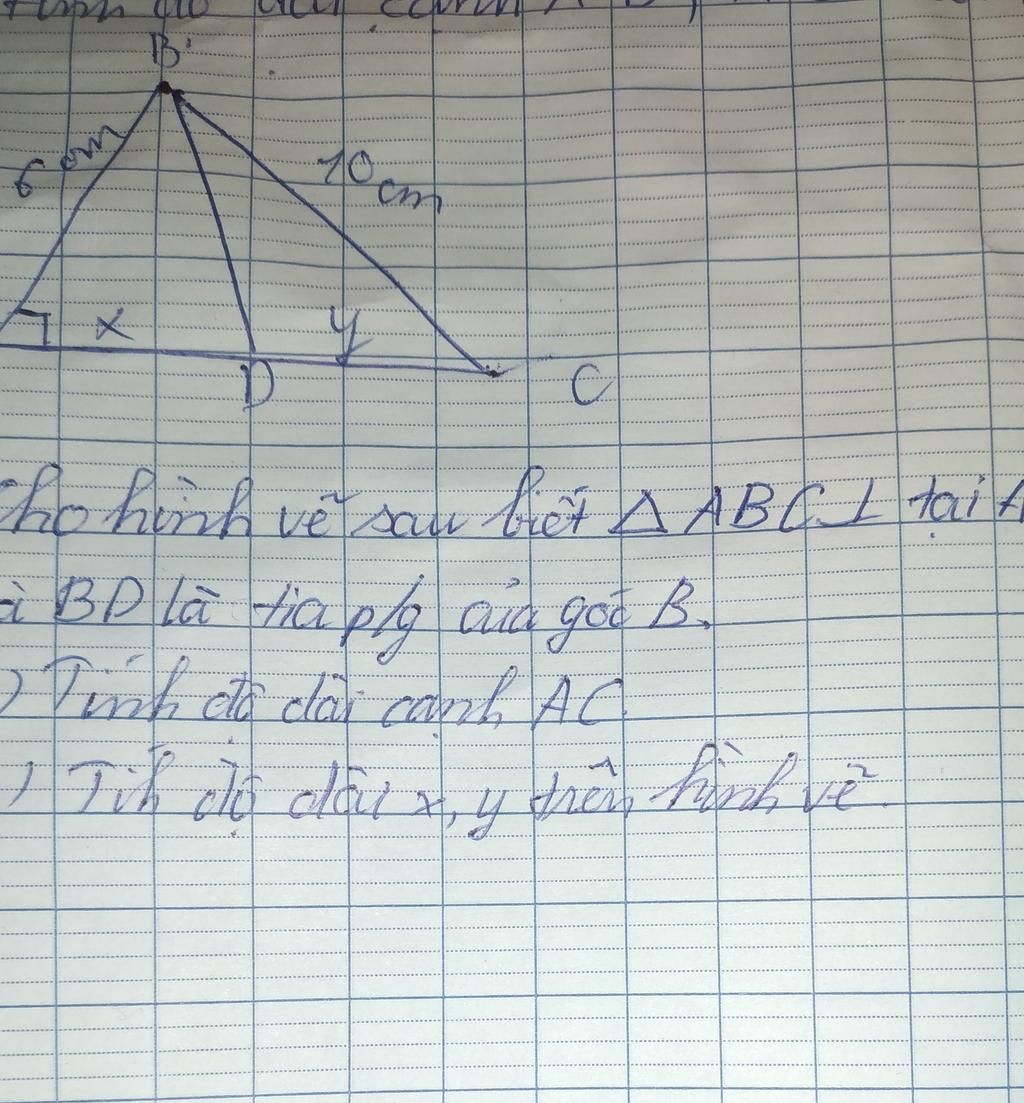 B
6 cm
10 cm
x
y
D
C
cho hình vẽ sau biết △ ABC ⊥ tại A
BD là tia p/g của góc B.
) Tính độ dài cạnh AC.
) Tíh độ dài x, y trên hình vẽ.